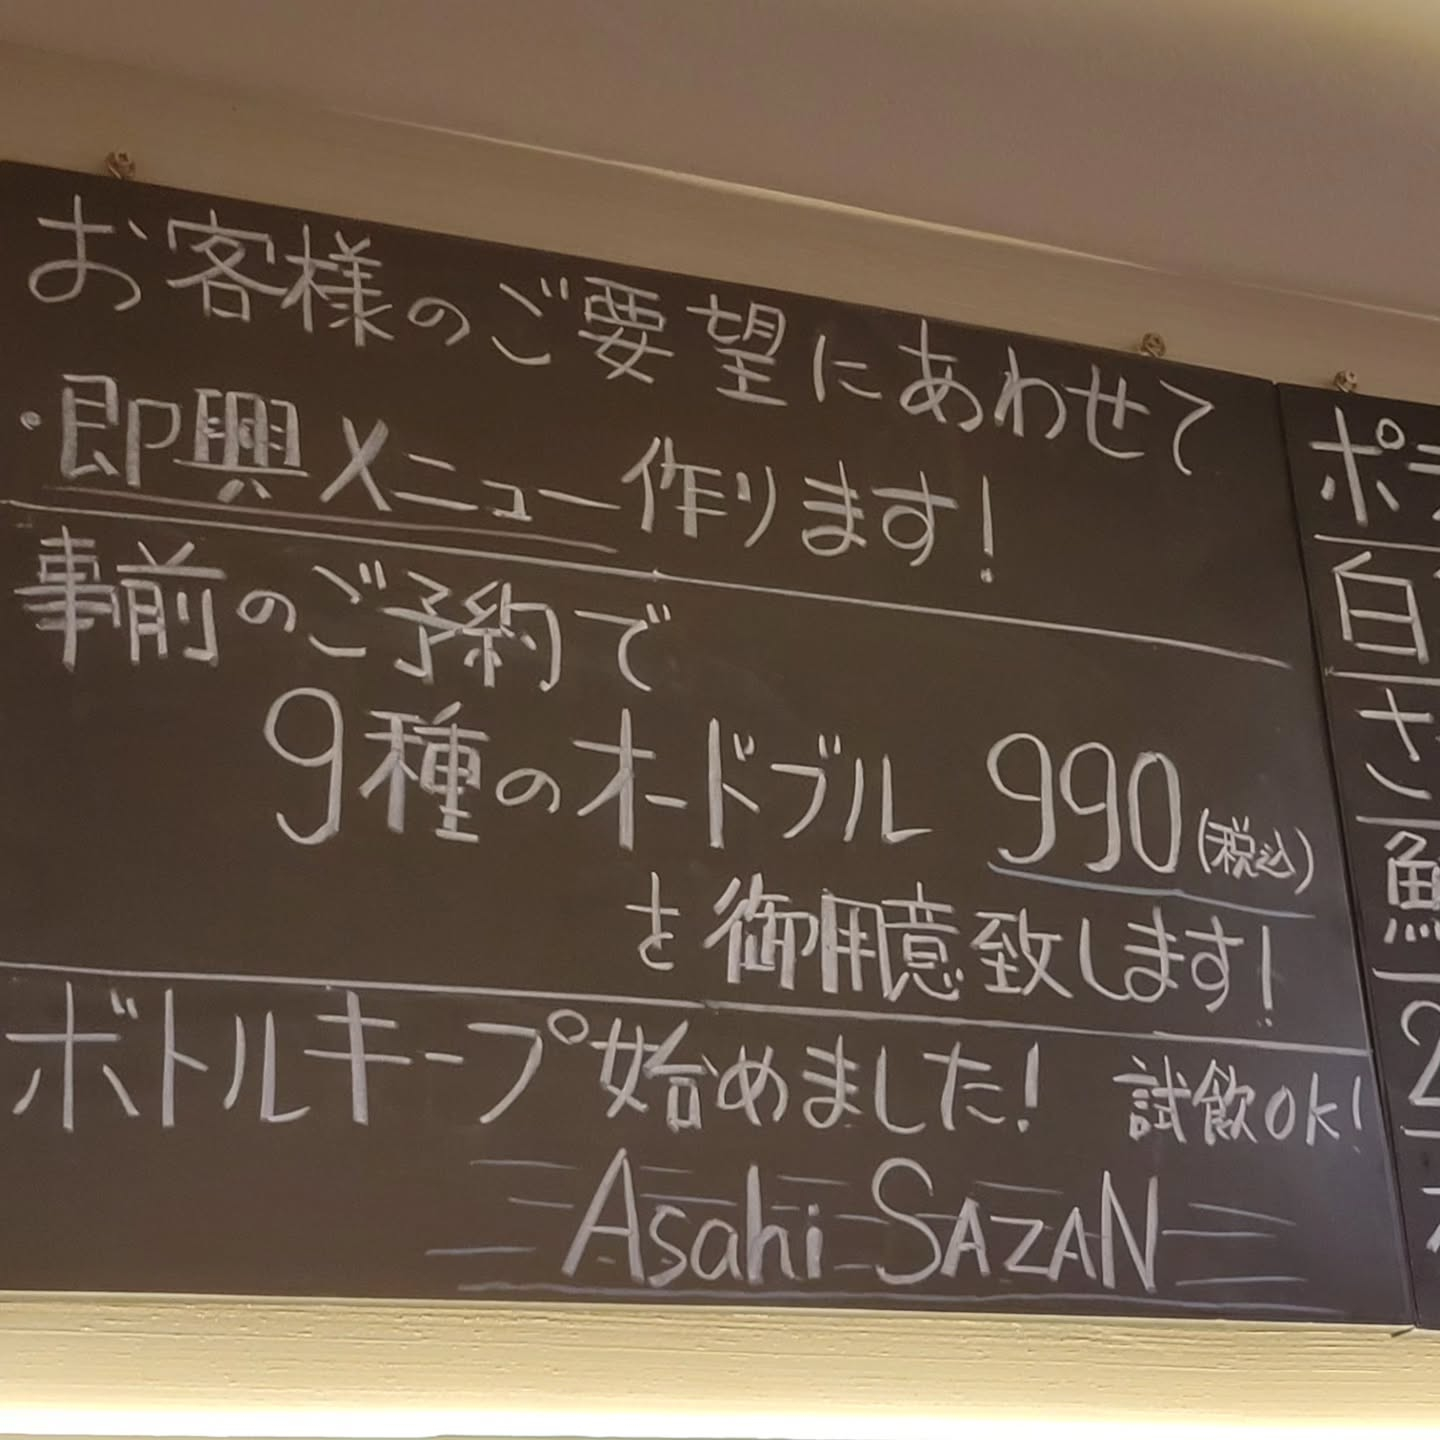 お客様のご要望にあわせて
・即興メニュー作ります!
事前のご予約で
9種のオードブル 990(税込)
を御用意致します!
ボトルキープ始めました! 試飲OK!
Asahi SAZAN
ポ
白
さ
2